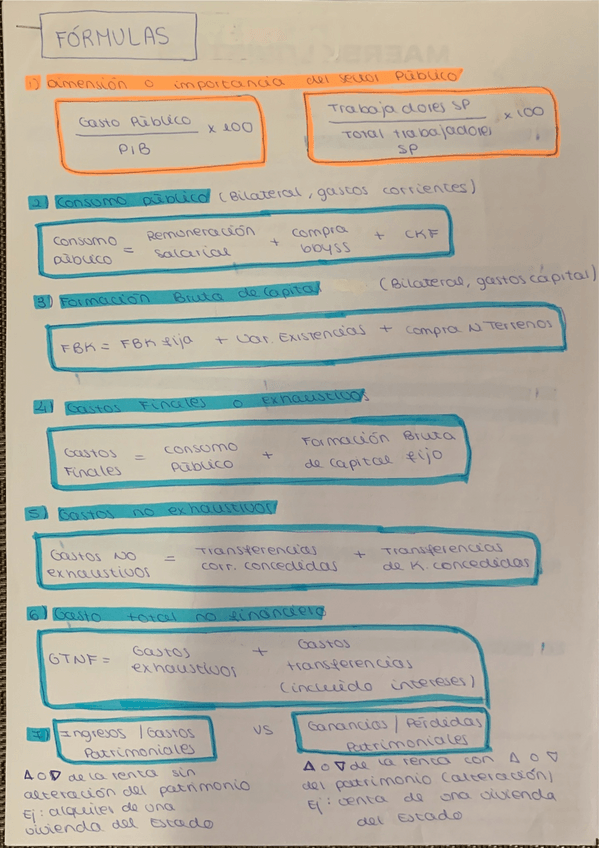 FÓRMULAS
1) Dimensión o importancia del sector Público
Gasto Público / PIB x 100
Trabajadores SP / Total trabajadores SP x 100
2) Consumo público (Bilateral, gastos corrientes)
Consumo público = Remuneración Salarial + compra bbyss + CKF
3) Formación Bruta de Capital (Bilateral, gastos capital)
FBK = FBK fija + Var. Existencias + compra N Terrenos
4) Gastos Finales o Exhaustivos
Gastos Finales = Consumo Público + Formación Bruta de Capital fijo
5) Gastos no exhaustivos
Gastos No exhaustivos = Transferencias corr. concedidas + Transferencias de K. concedidas
6) Gasto total no financiero
GTNF = Gastos exhaustivos + Gastos transferencias (incluido intereses)
7) Ingresos / Gastos Patrimoniales VS Ganancias / Pérdidas Patrimoniales
Δ o ∇ de la renta sin
alteración del patrimonio
Ej: alquiler de una
vivienda del Estado
Δ o ∇ de la renta con Δ o ∇
del patrimonio (alteración)
Ej: venta de una vivienda
del Estado